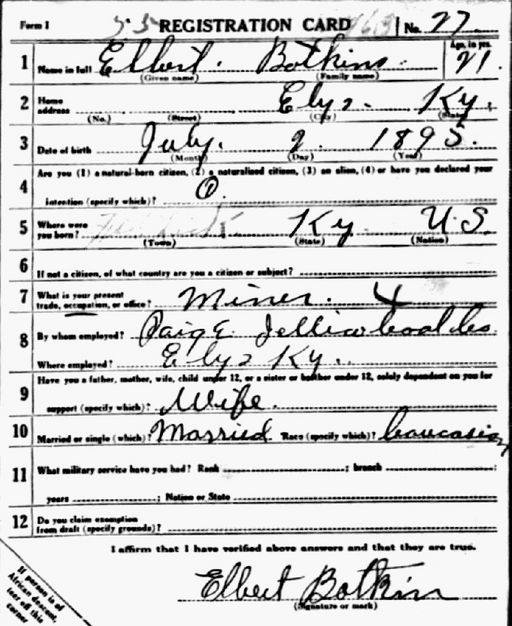 Form 1 REGISTRATION CARD No. 27
1 Name in full Elbert. Botkins. Age, in yrs. 21.
(Given name) (Family name)
2 Home address Elys. Ky.
(No.) (Street) (City) (State)
3 Date of birth July. 2. 1895.
(Month) (Day) (Year)
4 Are you (1) a natural-born citizen, (2) a naturalized citizen, (3) an alien, (4) or have you declared your
intention (specify which)?
5 Where were you born? Ky. U.S.
(Town) (State) (Nation)
6 If not a citizen, of what country are you a citizen or subject?
7 What is your present trade, occupation, or office? Miner. 4
8 By whom employed? Jellico Coal Co
Where employed? Elys Ky.
9 Have you a father, mother, wife, child under 12, or a sister or brother under 12, solely dependent on you for
support (specify which)? Wife.
10 Married or single (which)? Married Race (specify which)? Caucasian
11 What military service have you had? Rank ; branch ;
years ; Nation or State
12 Do you claim exemption from draft (specify grounds)?
I affirm that I have verified above answers and that they are true.
Elbert Botkin
(Signature or mark)
If person is of
African descent,
tear off this
corner